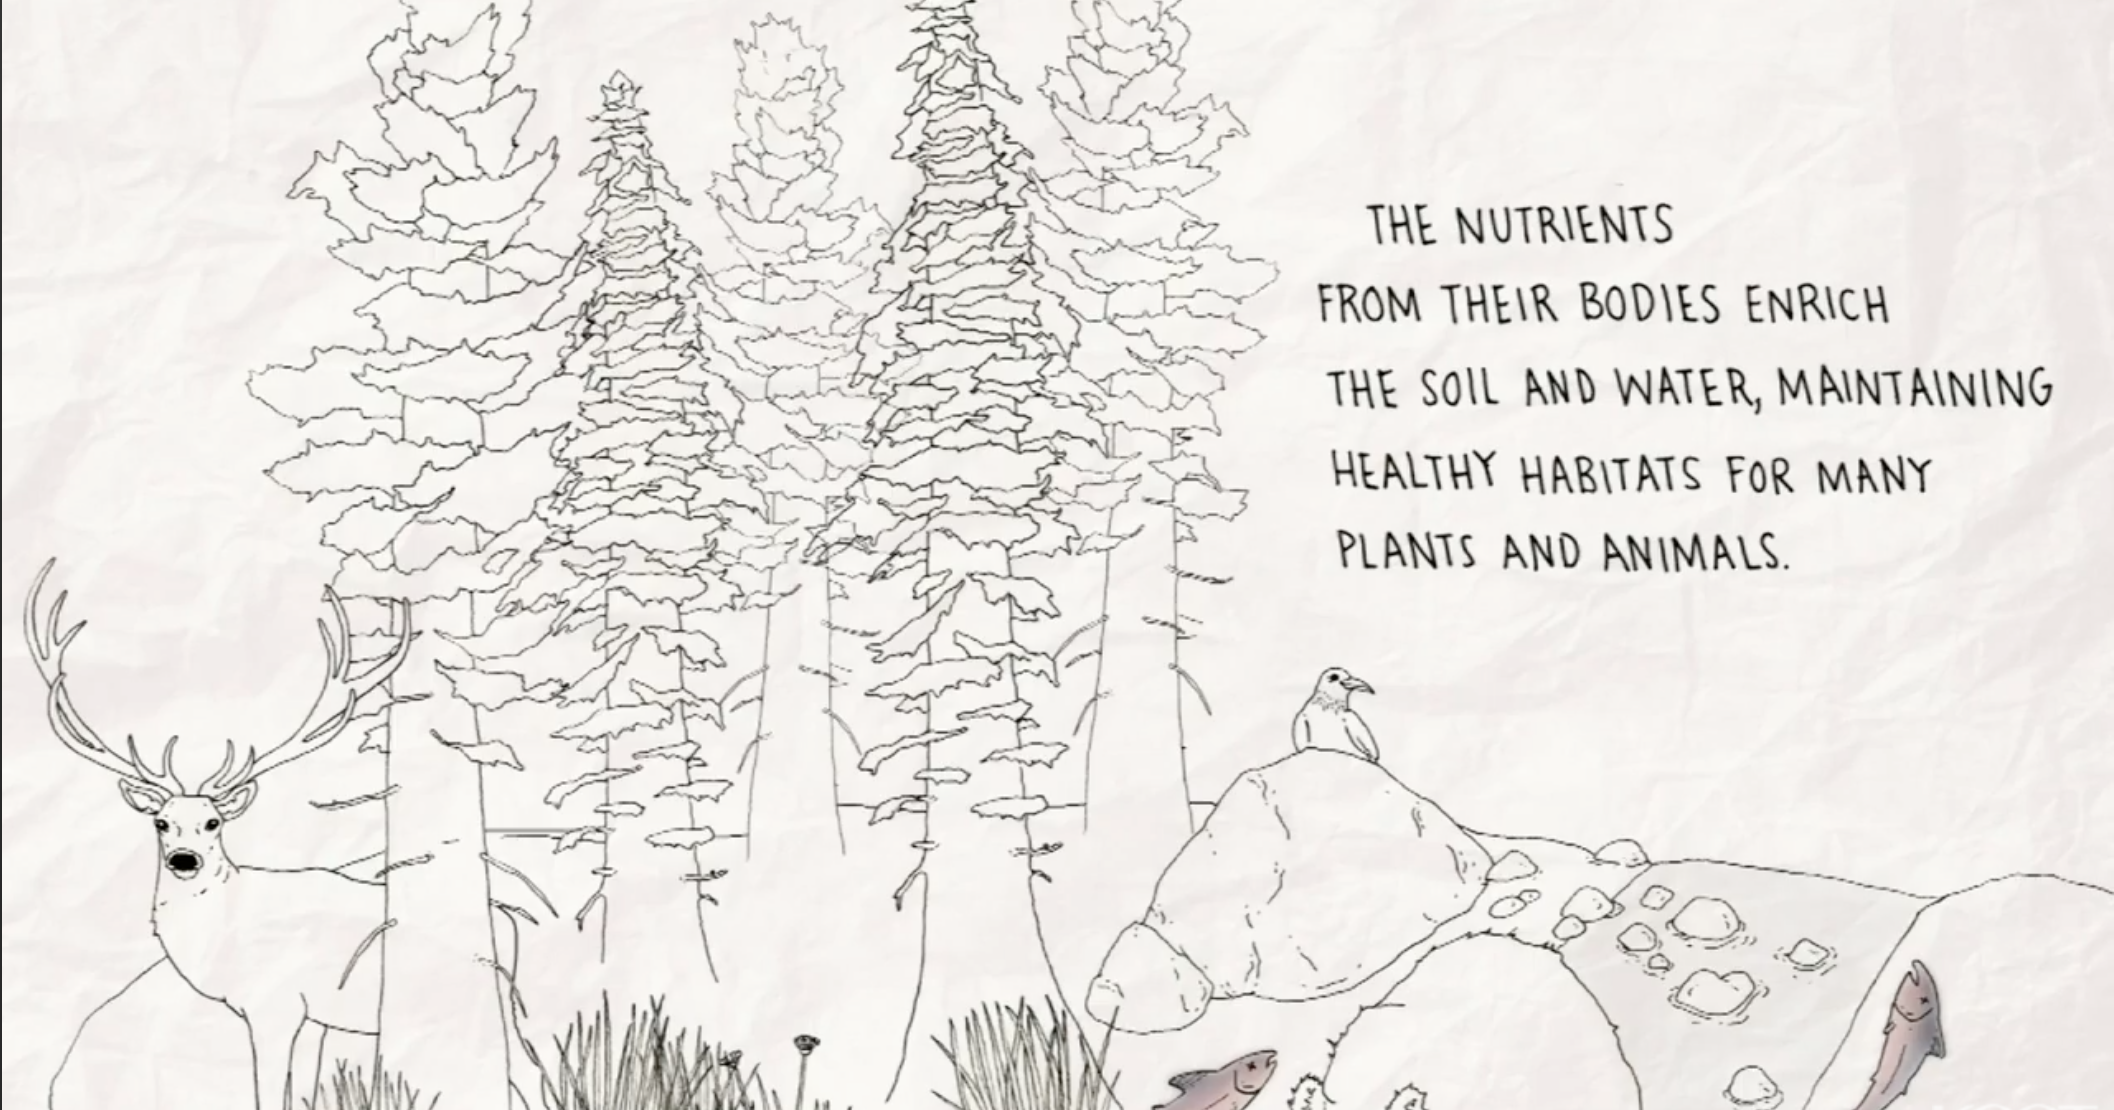 THE NUTRIENTS
FROM THEIR BODIES ENRICH
THE SOIL AND WATER, MAINTAINING
HEALTHY HABITATS FOR MANY
PLANTS AND ANIMALS.